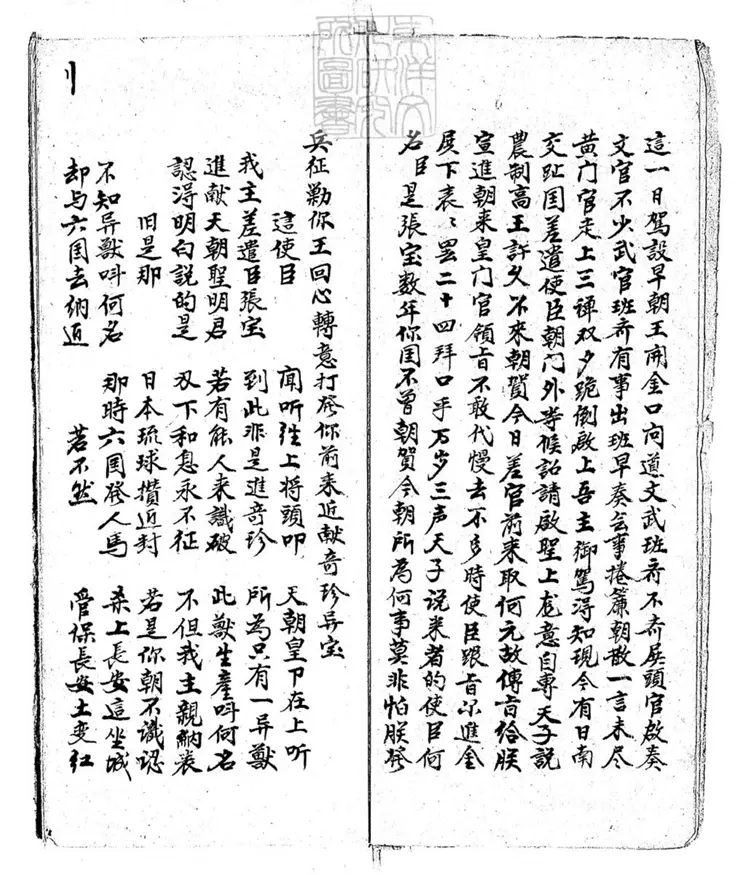 這一日駕設早朝王開金口问道文武班齐不齐展頭官啟奏
文官不少武官班齐有事出班早奏无事捲簾朝散一言未尽
黄门官走上三诨双夕跪倒啟上吾主御駕淂知現今有日南
交趾囯差遣使臣朝门外等候詔請啟聖上龙意自專天子説
農制高王許久不來朝賀今日差官前来取何元故傳旨給朕
宣進朝来皇门官領旨不敢代慢去不多時使臣跟旨尔進金
展下表〻罢二十四拜口乎万岁三声天子说来者的使臣何
名臣是張宝数年你囯不曾朝賀今朝所為何事莫非怕朕發
兵征勦你王回心轉意打發你前来近献奇珍异宝
這使臣 闻听往上将頭叩 天朝皇下在上听
我主差遣臣張宝 到此非是進奇珍 所為只有一异獸
進献天朝聖明君 若有能人来識破 此獸生産叫何名
認淂明白説的是 刄下和息永不征 不但我主親納表
旧是那 日本琉球攢近封 若是你朝不識認
不知异獸叫何名 那時六囯發人馬 桑上長安這坐城
却与六囯去纳近 若不然 管保長安土变红
東洋文化研究所圖書